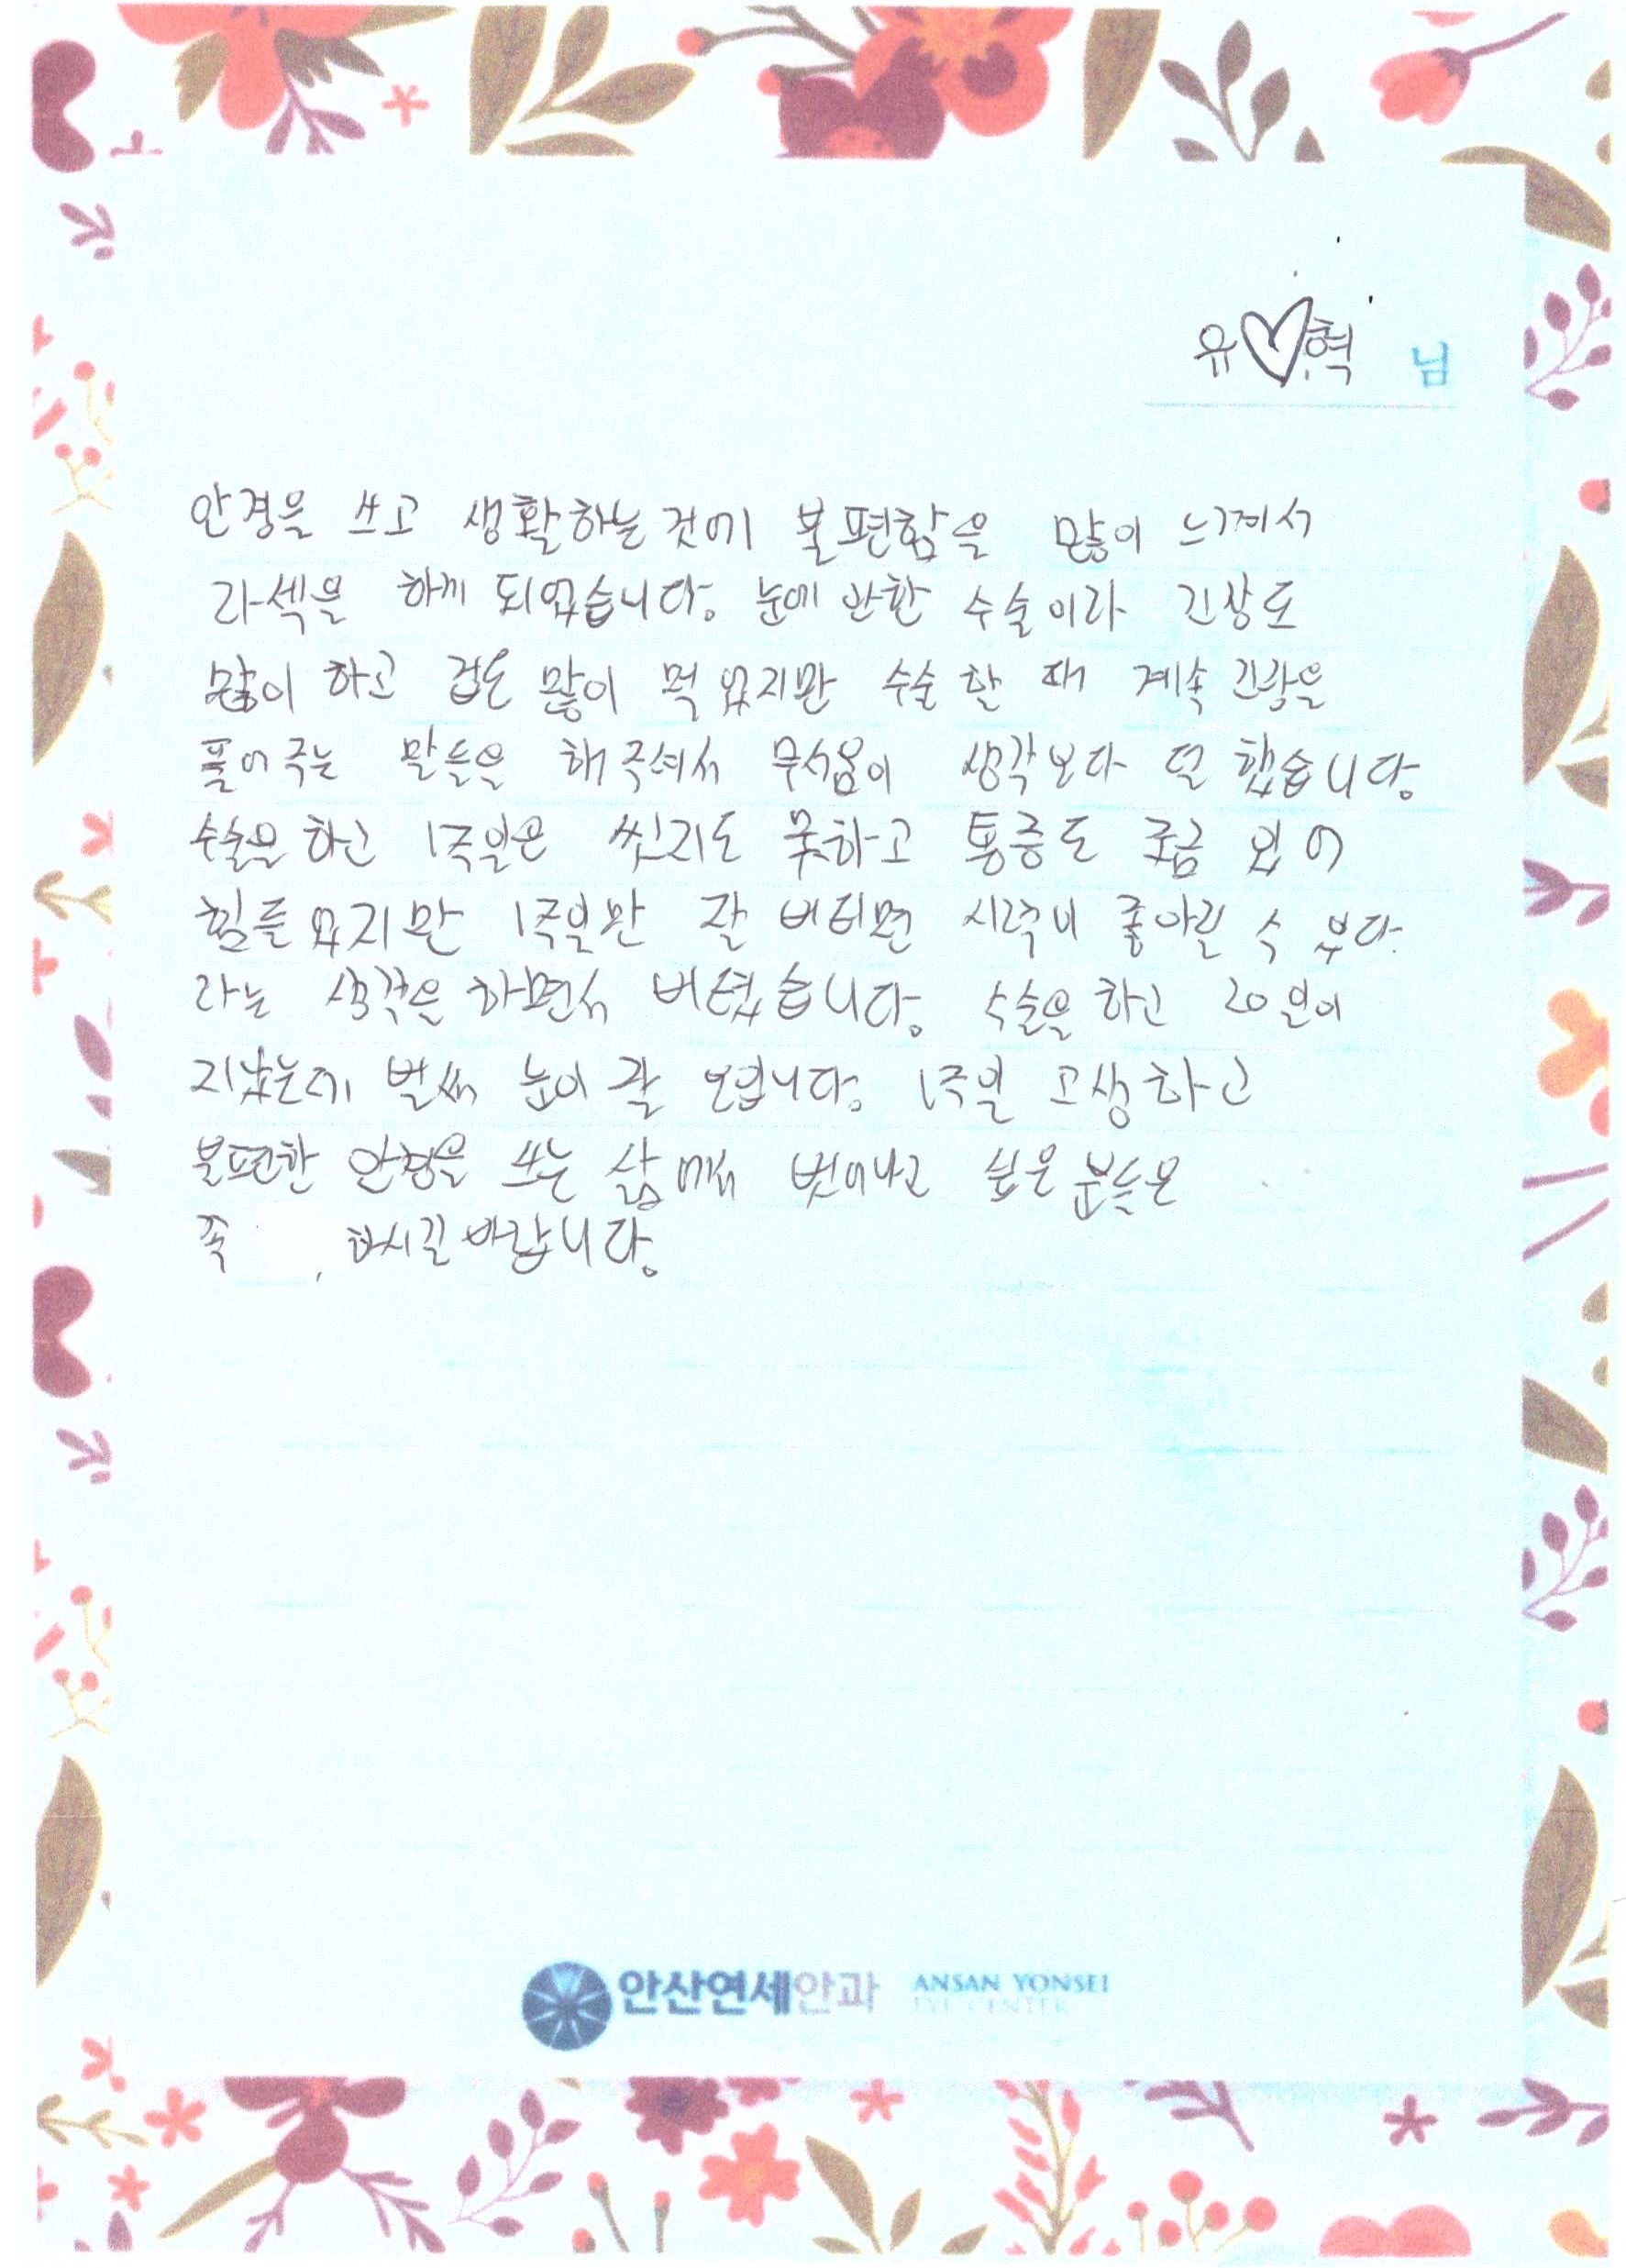 유♡혁 님
안경을 쓰고 생활하는것에 불편함을 많이 느껴서
라섹을 하게 되었습니다. 눈에 관한 수술이라 긴장도
많이 하고 겁도 많이 먹었지만 수술 할 때 계속 긴장을
풀어주는 말들을 해주셔서 무서움이 생각보다 덜 했습니다.
수술을 하고 1주일은 씻지도 못하고 통증도 조금 있어
힘들었지만 1주일만 잘 버티면 시력이 좋아질 수 있다
라는 생각을 하면서 버텼습니다. 수술을 하고 20일이
지났는데 벌써 눈이 잘 보입니다. 1주일 고생하고
불편한 안경을 쓰는 삶에서 벗어나고 싶은 분들은
꼭 하시길 바랍니다.
안산연세안과 ANSAN YONSEI
EYE CENTER